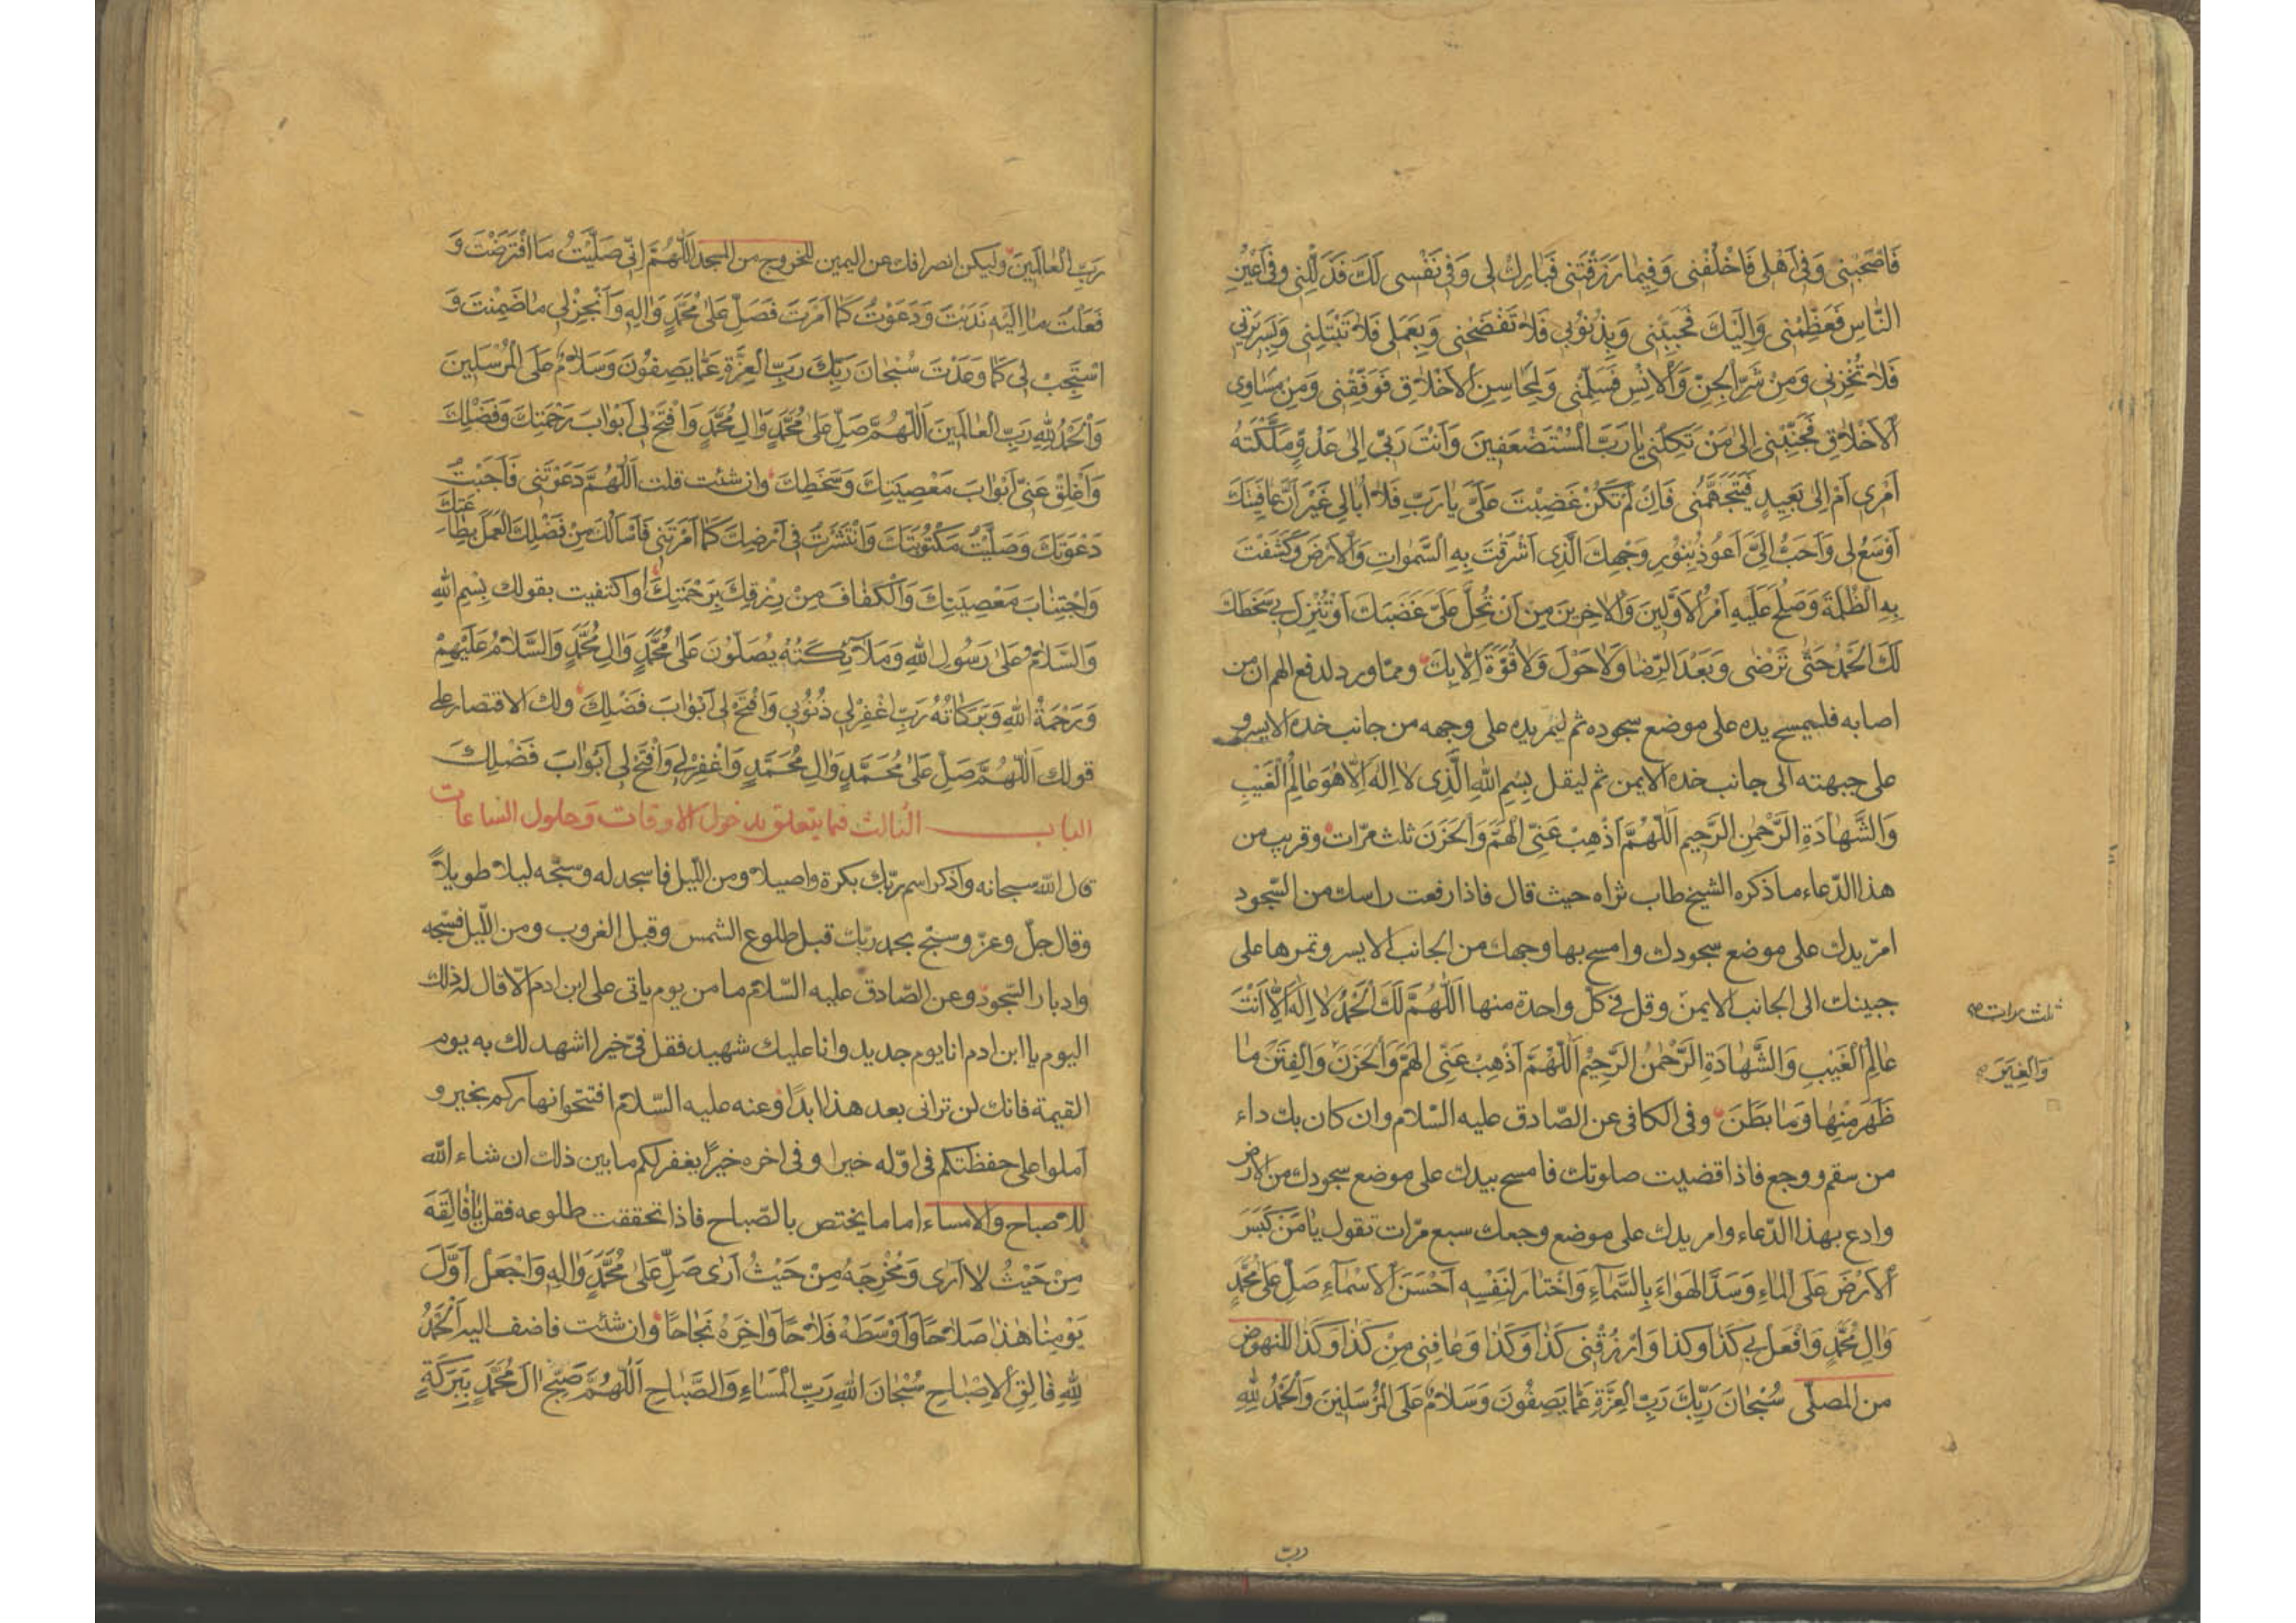 فَاصْحَبْنِى وَفِى اَهْلِى فَاخْلُفْنِى وَفِيمَا رَزَقْتَنِى فَبَارِكْ لِى وَفِى نَفْسِى لَكَ فَذَلِّلْنِى وَفِى اَعْيُنِ
النَّاسِ فَعَظِّمْنِى وَاِلَيْكَ فَحَبِّبْنِى وَبِذُنُوبِى فَلَا تَفْضَحْنِى وَبِعَمَلِى فَلَا تَبْتَلِنِى وَبِسَرِيرَتِى
فَلَا تُخْزِنِى وَمِنْ شَرِّ الْجِنِّ وَالْاِنْسِ فَسَلِّمْنِى وَلِمَحَاسِنِ الْاَخْلَاقِ فَوَفِّقْنِى وَمِنْ مَسَاوِى
الْاَخْلَاقِ فَجَنِّبْنِى اِلَى مَنْ تَكِلُنِى يَا رَبَّ الْمُسْتَضْعَفِينَ وَاَنْتَ رَبِّى اِلَى عَدُوٍّ مَلَّكْتَهُ
اَمْرِى اَمْ اِلَى بَعِيدٍ فَيَتَجَهَّمُنِى فَاِنْ لَمْ تَكُنْ غَضِبْتَ عَلَىَّ يَا رَبِّ فَلَا اُبَالِى غَيْرَ اَنَّ عَافِيَتَكَ
اَوْسَعُ لِى وَاَحَبُّ اِلَىَّ اَعُوذُ بِنُورِ وَجْهِكَ الَّذِى اَشْرَقَتْ بِهِ السَّمٰوَاتِ وَالْاَرْضَ وَكَشَفْتَ
بِهِ الظُّلْمَةَ وَصَلُحَ عَلَيْهِ اَمْرُ الْاَوَّلِينَ وَالْاٰخِرِينَ مِنْ اَنْ تُحِلَّ عَلَىَّ غَضَبَكَ اَوْ تُنْزِلَ بِى سَخَطَكَ
لَكَ الْحَمْدُ حَتَّى تَرْضَى وَبَعْدَ الرِّضَا وَلَا حَوْلَ وَلَا قُوَّةَ اِلَّا بِكَ وممّا ورد لدفع الهم ان من
اصابه فليمسح يده على موضع سجوده ثم ليمرّ يده على وجهه من جانب خده الايسر و
على جبهته الى جانب خده الايمن ثم ليقل بِسْمِ اللهِ الَّذِى لَا اِلٰهَ اِلَّا هُوَ عَالِمُ الْغَيْبِ
وَالشَّهَادَةِ الرَّحْمٰنِ الرَّحِيمِ اَللّٰهُمَّ اَذْهِبْ عَنِّى الْهَمَّ وَالْحَزَنَ ثلث مرّات وقريب من
هذا الدّعاء ما ذكره الشيخ طاب ثراه حيث قال فاذا رفعت راسك من السّجود
امرّ يدك على موضع سجودك وامسح بها وجهك من الجانب الايسر وتمرها على
جبينك الى الجانب الايمن وقل فى كلّ واحدة منها اَللّٰهُمَّ لَكَ الْحَمْدُ لَا اِلٰهَ اِلَّا اَنْتَ
ثلث مرات صح
عَالِمُ الْغَيْبِ وَالشَّهَادَةِ الرَّحْمٰنُ الرَّحِيمُ اَللّٰهُمَّ اَذْهِبْ عَنِّى الْهَمَّ وَالْحَزَنَ وَالْفِتَنَ مَا
وَالْغِيَرَ
ظَهَرَ مِنْهَا وَمَا بَطَنَ وفى الكافى عن الصّادق عليه السّلام وان كان بك داء
من سقم ووجع فاذا قضيت صلوتك فامسح بيدك على موضع سجودك من الارض
وادع بهذا الدّعاء وامر يدك على موضع وجعك سبع مرّات تقول يَا مَنْ كَبَسَ
الْاَرْضَ عَلَى الْمَاءِ وَسَدَّ الْهَوَاءَ بِالسَّمَآءِ وَاخْتَارَ لِنَفْسِهِ اَحْسَنَ الْاَسْمَاءِ صَلِّ عَلَى مُحَمَّدٍ
وَاٰلِ مُحَمَّدٍ وَافْعَلْ بِى كَذَا وكذا وَارْزُقْنِى كَذَا وَكَذَا وَعَافِنِى مِنْ كَذَا وَكَذَا للنهوض
من المصلّى سُبْحَانَ رَبِّكَ رَبِّ الْعِزَّةِ عَمَّا يَصِفُونَ وَسَلَامٌ عَلَى الْمُرْسَلِينَ وَالْحَمْدُ لِلّٰهِ
ربّ
رَبِّ الْعَالَمِينَ وليكن انصرافك عن اليمين للخروج من المسجد اَللّٰهُمَّ اِنِّى صَلَّيْتُ مَا افْتَرَضْتَ وَ
فَعَلْتُ مَا اِلَيْهِ نَدَبْتَ وَدَعَوْتُ كَمَا اَمَرْتَ فَصَلِّ عَلَى مُحَمَّدٍ وَاٰلِهِ وَاَنْجِزْ لِى مَا ضَمِنْتَ وَ
اسْتَجِبْ لِى كَمَا وَعَدْتَ سُبْحَانَ رَبِّكَ رَبِّ الْعِزَّةِ عَمَّا يَصِفُونَ وَسَلَامٌ عَلَى الْمُرْسَلِينَ
وَالْحَمْدُ لِلّٰهِ رَبِّ الْعَالَمِينَ اَللّٰهُمَّ صَلِّ عَلَى مُحَمَّدٍ وَاٰلِ مُحَمَّدٍ وَافْتَحْ لِى اَبْوَابَ رَحْمَتِكَ وَفَضْلِكَ
وَاَغْلِقْ عَنِّى اَبْوَابَ مَعْصِيَتِكَ وَسَخَطِكَ وان شئت قلت اَللّٰهُمَّ دَعَوْتَنِى فَاَجَبْتُ
دَعْوَتَكَ وَصَلَّيْتُ مَكْتُوبَتَكَ وَانْتَشَرْتُ فِى اَرْضِكَ كَمَا اَمَرْتَنِى فَاَسْاَلُكَ مِنْ فَضْلِكَ الْعَمَلَ بِطَاعَتِكَ
وَاجْتِنَابَ مَعْصِيَتِكَ وَالْكَفَافَ مِنْ رِزْقِكَ بِرَحْمَتِكَ او اكتفيت بقولك بِسْمِ اللهِ
وَالسَّلَامُ عَلَى رَسُولِ اللهِ وَمَلَآئِكَتُهُ يُصَلُّونَ عَلَى مُحَمَّدٍ وَاٰلِ مُحَمَّدٍ وَالسَّلَامُ عَلَيْهِمْ
وَرَحْمَةُ اللهِ وَبَرَكَاتُهُ رَبِّ اغْفِرْ لِى ذُنُوبِى وَافْتَحْ لِى اَبْوَابَ فَضْلِكَ ولك الاقتصار على
قولك اَللّٰهُمَّ صَلِّ عَلَى مُحَمَّدٍ وَاٰلِ مُحَمَّدٍ وَاغْفِرْ لِى وَافْتَحْ لِى اَبْوَابَ فَضْلِكَ
الباب الثالث فيما يتعلق بدخول الاوقات وحلول الساعات
قال اللّه سبحانه واذكر اسم ربّك بكرة واصيلا ومن اللّيل فاسجد له وسبّحه ليلا طويلاً
وقال جلّ وعزّ وسبّح بحمد ربّك قبل طلوع الشمس وقبل الغروب ومن اللّيل فسبّحه
وادبار السّجود وعن الصّادق عليه السّلام ما من يوم ياتى على ابن ادم الّا قال له ذلك
اليوم يا ابن ادم انا يوم جديد وانا عليك شهيد فقل فىّ خيرا اشهد لك به يوم
القيمة فانك لن ترانى بعد هذا ابدًا وعنه عليه السّلام افتتحوا نهاركم بخير و
املوا على حفظتكم فى اوّله خيرا وفى اخره خيرًا يغفر لكم ما بين ذلك ان شاء اللّه
للاصباح والامساء اما ما يختص بالصّباح فاذا تحققت طلوعه فقل يَا فَالِقَهُ
مِنْ حَيْثُ لَا اَرَى وَمُخْرِجَهُ مِنْ حَيْثُ اَرَى صَلِّ عَلَى مُحَمَّدٍ وَاٰلِهِ وَاجْعَلْ اَوَّلَ
يَوْمِنَا هٰذَا صَلَاحًا وَاَوْسَطَهُ فَلَاحًا وَاٰخِرَهُ نَجَاحًا وان شئت فاضف اليه اَلْحَمْدُ
لِلّٰهِ فَالِقِ الْاِصْبَاحِ سُبْحَانَ اللهِ رَبِّ الْمَسَاءِ وَالصَّبَاحِ اَللّٰهُمَّ صَبِّحْ اٰلَ مُحَمَّدٍ بِبَرَكَةٍ